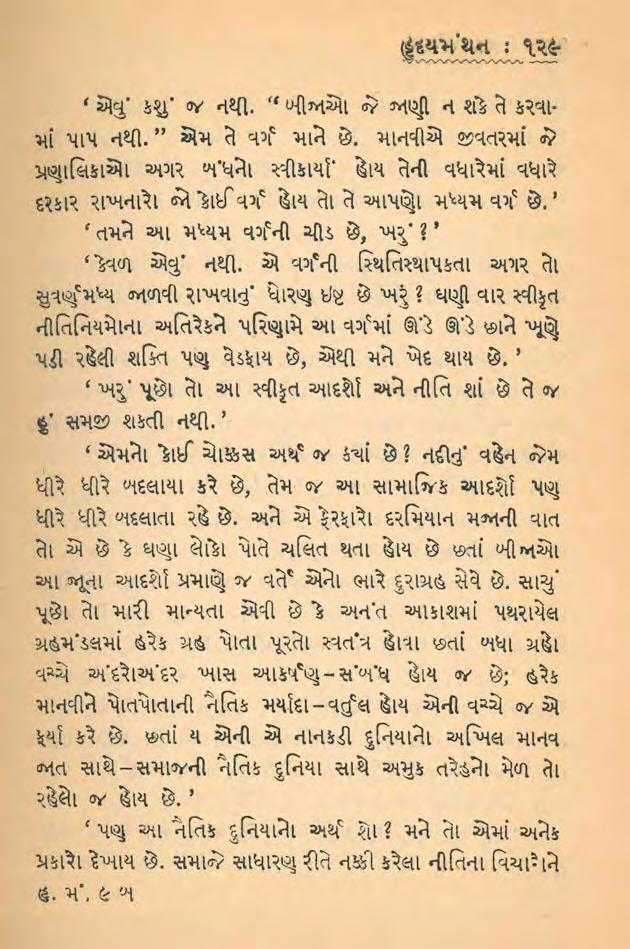 હૃદયમંથન : ૧૨૯
‘ એવું કશું જ નથી. “ બીજાઓ જે જાણી ન શકે તે કરવા-
માં પાપ નથી.” એમ તે વર્ગ માને છે. માનવીએ જીવતરમાં જે
પ્રણાલિકાઓ અગર બંધનો સ્વીકાર્યાં હોય તેની વધારેમાં વધારે
દરકાર રાખનારો જો કોઈ વર્ગ હોય તો તે આપણો મધ્યમ વર્ગ છે.’
‘ તમને આ મધ્યમ વર્ગની ચીડ છે, ખરું ? ’
‘ કેવળ એવું નથી. એ વર્ગની સ્થિતિસ્થાપકતા અગર તો
સુવર્ણમધ્ય જાળવી રાખવાનું ધોરણ ઇષ્ટ છે ખરું ? ઘણી વાર સ્વીકૃત
નીતિનિયમોના અતિરેકને પરિણામે આ વર્ગમાં ઊંડે ઊંડે છાને ખૂણે
પડી રહેલી શક્તિ પણ વેડફાય છે, એથી મને ખેદ થાય છે. ’
‘ ખરું પૂછો તો આ સ્વીકૃત આદર્શો અને નીતિ શાં છે તે જ
હું સમજી શકતી નથી. ’
‘ એમનો કોઈ ચોક્કસ અર્થ જ ક્યાં છે ? નદીનું વહેન જેમ
ધીરે ધીરે બદલાયા કરે છે, તેમ જ આ સામાજિક આદર્શો પણ
ધીરે ધીરે બદલાતા રહે છે. અને એ ફેરફારો દરમિયાન મજાની વાત
તો એ છે કે ઘણા લોકો પોતે ચલિત થતા હોય છે છતાં બીજાઓ
આ જૂના આદર્શો પ્રમાણે જ વર્તે એનો ભારે દુરાગ્રહ સેવે છે. સાચું
પૂછો તો મારી માન્યતા એવી છે કે અનંત આકાશમાં પથરાયેલ
ગ્રહમંડલમાં હરેક ગ્રહ પોતા પૂરતો સ્વતંત્ર હોવા છતાં બધા ગ્રહો
વચ્ચે અંદરોઅંદર ખાસ આકર્ષણ – સંબંધ હોય જ છે; હરેક
માનવીને પોતપોતાની નૈતિક મર્યાદા – વર્તુલ હોય એની વચ્ચે જ એ
ફર્યા કરે છે. છતાં ય એની એ નાનકડી દુનિયાનો અખિલ માનવ
જાત સાથે – સમાજની નૈતિક દુનિયા સાથે અમુક તરેહનો મેળ તો
રહેલો જ હોય છે. ’
‘ પણ આ નૈતિક દુનિયાનો અર્થ શો ? મને તો એમાં અનેક
પ્રકારો દેખાય છે. સમાજે સાધારણ રીતે નક્કી કરેલા નીતિના વિચારોને
હૃ. મં. ૯ બ